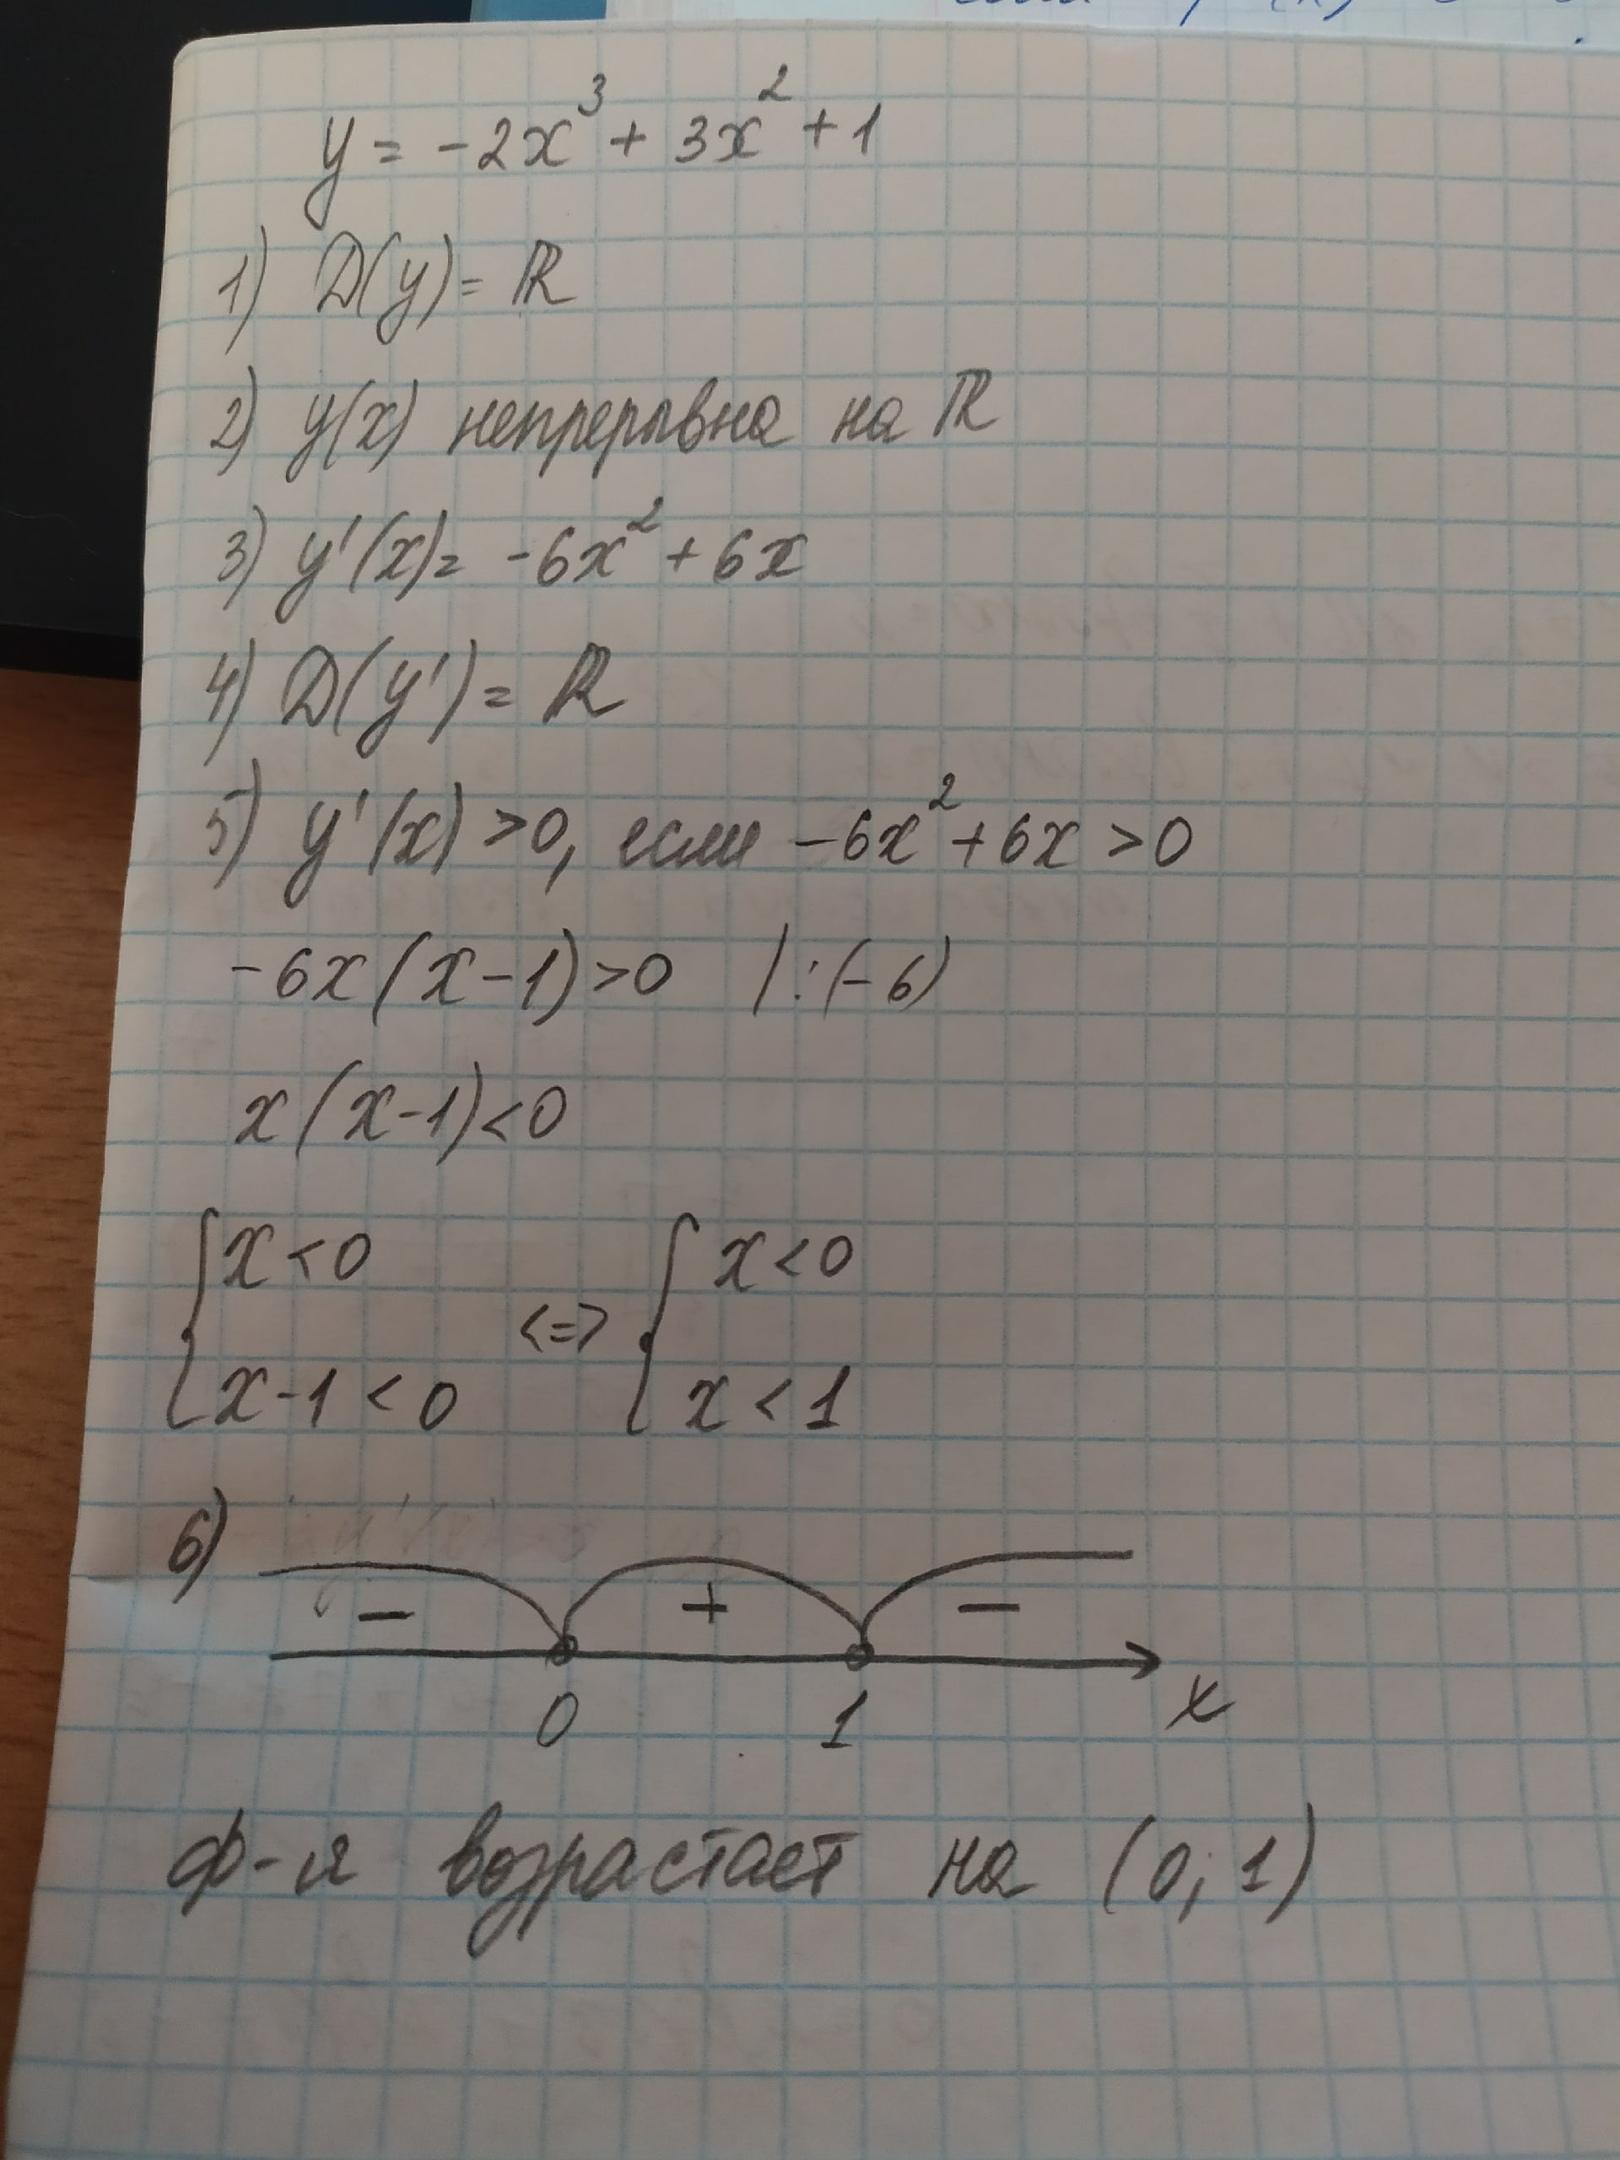 y = -2x³ + 3x² + 1
1) D(y) = ℝ
2) y(x) непрерывна на ℝ
3) y'(x) = -6x² + 6x
4) D(y') = ℝ
5) y'(x) > 0, если -6x² + 6x > 0
-6x(x-1) > 0 | :(-6)
x(x-1) < 0
{ x < 0 <=> { x < 0
x-1 < 0 x < 1
6)
- + -
0 1 x
ф-я возрастает на (0; 1)